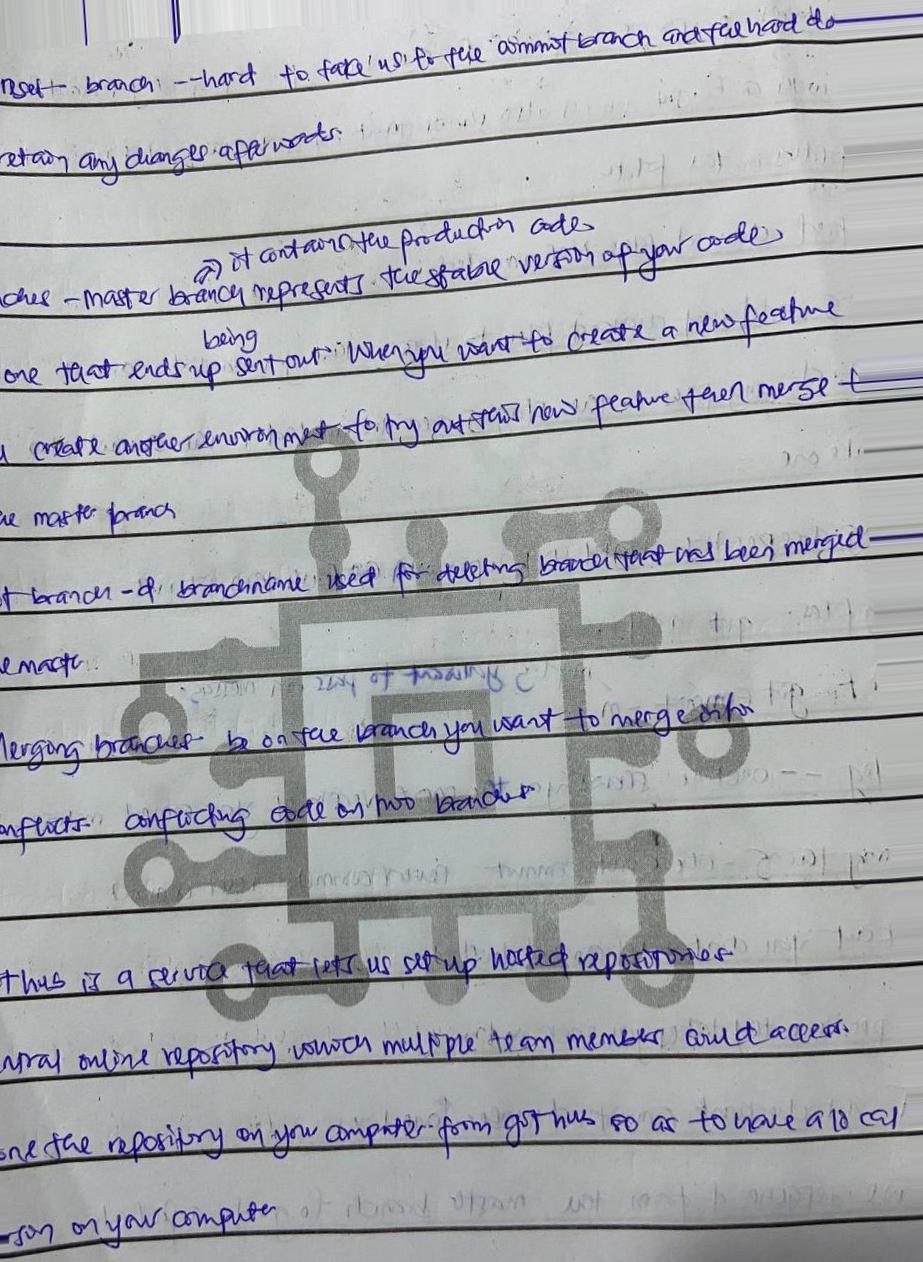 reset branch --hard to take us to the commit branch and the hard do
retain any changes afterwards.
it contains the production code
ches - master branch represents the stable version of your code
being
one that ends up sent out. When you want to create a new feature
create another environment to try out this new feature then merge t
he master branch
t branch -d branchname used for deleting branch that has been merged
e maste
erging branches be on the branch you want to merge onto
onflicts conflicting code on two branches
thub is a service that lets us set up hosted repositories
ntral online repository which multiple team members could access.
one the repository on your computer from github so as to have a local
rson on your computer